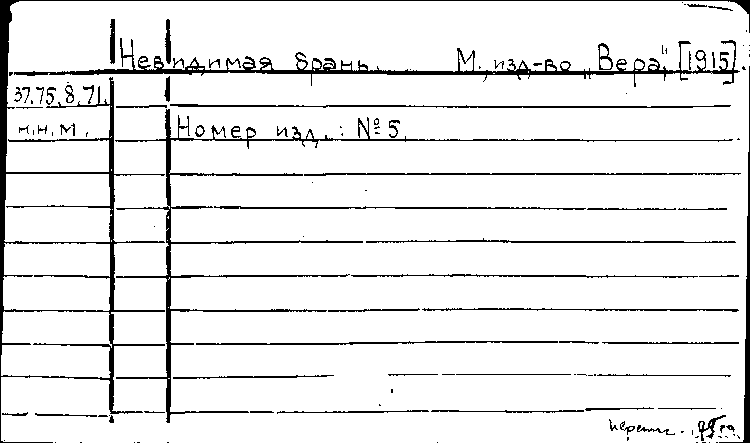 Невидимая брань. М., изд-во „Вера“, [1915].
37.75.8.71.
н.н.м. Номер изд.: № 5.